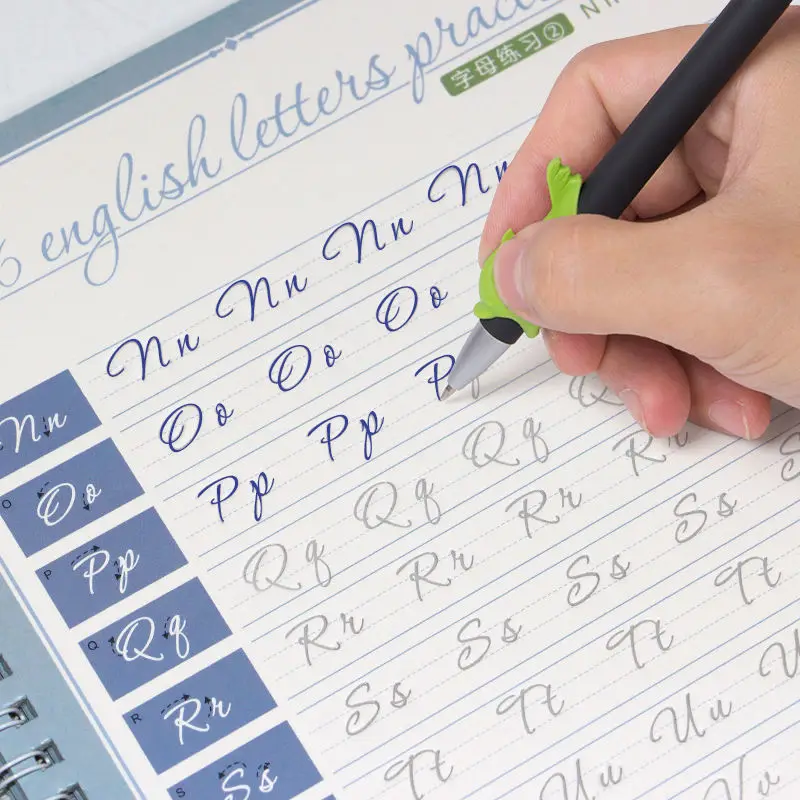 6 english letters
字母练习②
Nn Nn Nn Nn
Nn
Oo Oo Oo
O Oo
Pp Pp P
P Pp
Qq Qq Qq
Q Qq
Rr Rr Rr Rr
R Rr
Ss Ss Ss
S Ss
Tt Tt Tt Tt
Uu Uu